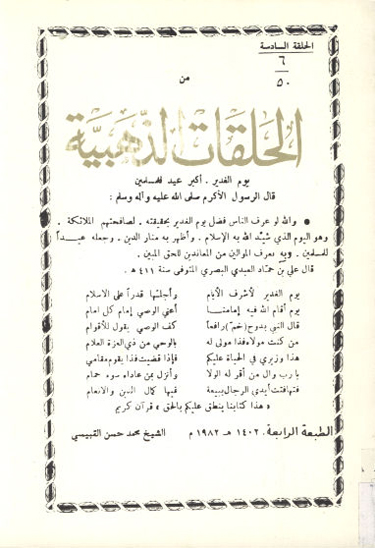 الحلقة السادسة
٦
٥٠
من
الحلقات الذهبية
يوم الغدير . أكبر عيد للمسلمين
قال الرسول الأكرم صلى الله عليه وآله وسلم :
● والله لو عرف الناس فضل يوم الغدير بحقيقته . لصافحتهم الملائكة .
وهو اليوم الذي شيّد الله به الإسلام . وأظهر به منار الدين . وجعله عيداً
للمسلمين . وبه نعرف الموالين من المعاندين للحق المبين .
قال علي بن حمّاد العبدي البصري المتوفى سنة ٤١١ ه .
يوم الغدير لأشرف الأيام وأجلّها قدراً على الاسلام
يوم أقام الله فيه إمامنا أعني الوصي إمام كل امام
قال النبي بدوح (خم) رافعاً كف الوصي بقول للأقوام
من كنت مولاه فذا مولى له بالوحي من ذي العزة العلام
هذا وزيري في الحياة عليكم فإذا قضيت فذا يقوم مقامي
يا رب وال من أقر له الولا وأنزل بمن عاداه سوء حمام
فتهافتت أيدي الرجال ببيعة فيها كمال الدين والانعام
« هذا كتابنا ينطق عليكم بالحق » قرآن كريم
الطبعة الرابعة . ١٤٠٢ هـ ١٩٨٢ م الشيخ محمد حسن القبيسي